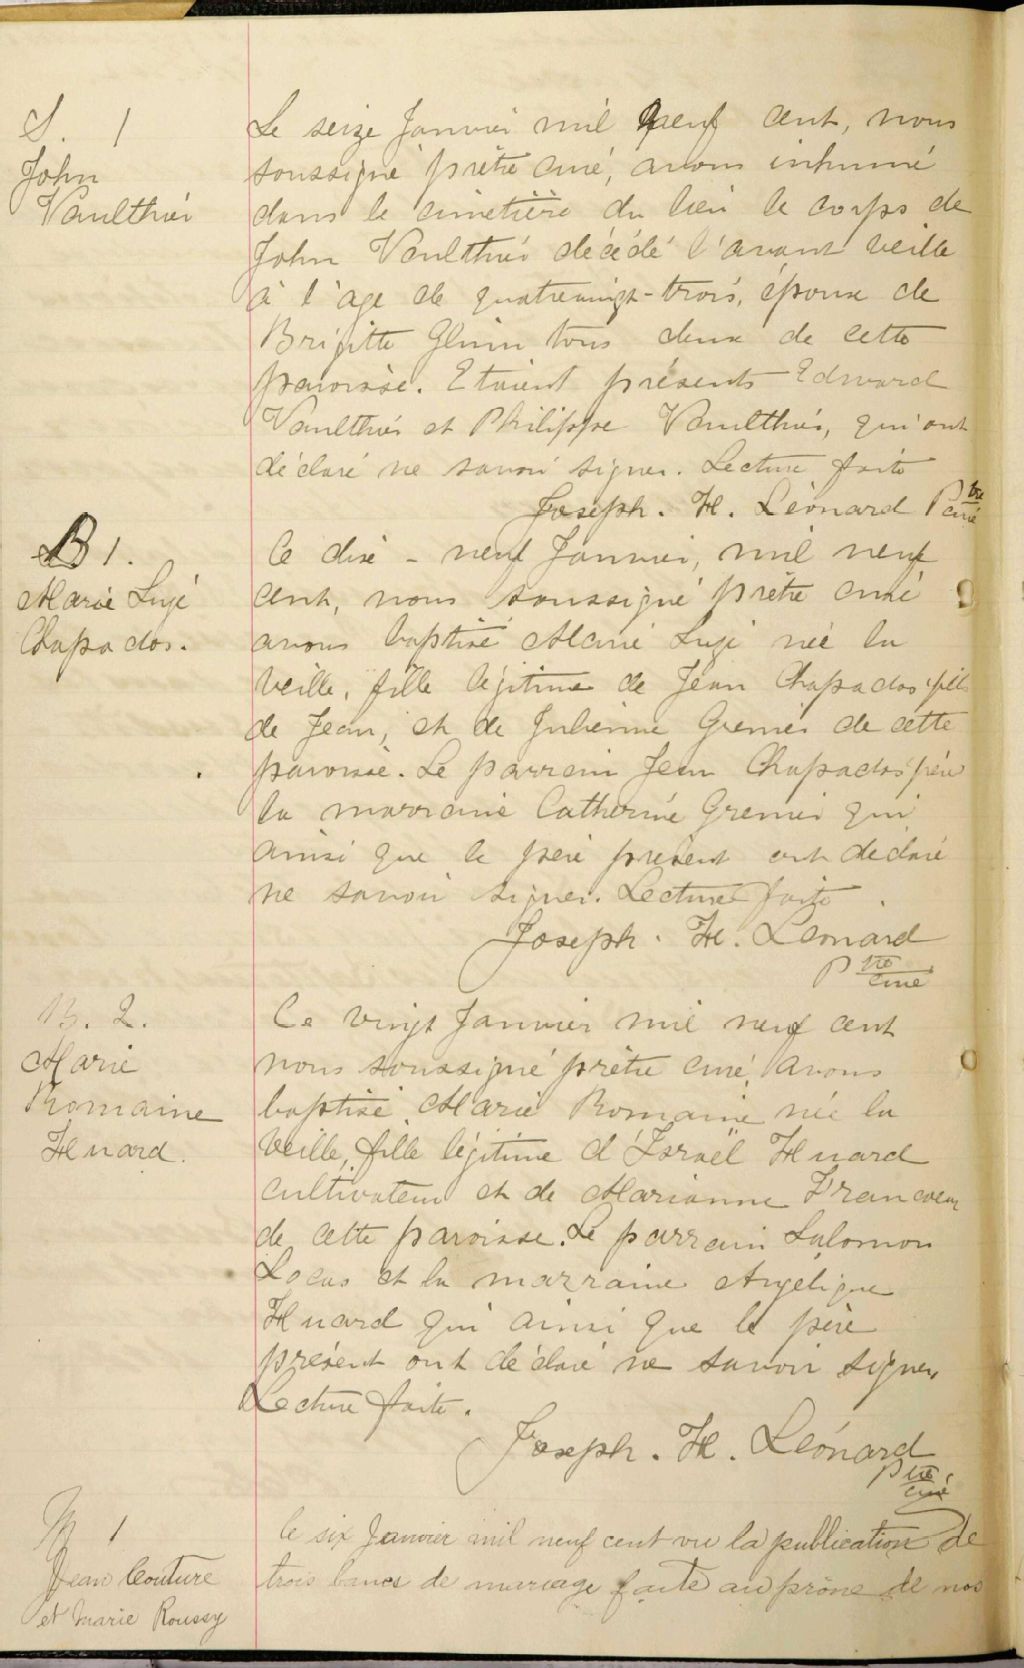 S. 1
John
Vaulthier
Le seize Janvier mil neuf cent, nous
soussigné prêtre curé, avons inhumé
dans le cimetière du lieu le corps de
John Vaulthier décédé l'avant veille
à l'age de quatrevingt-trois, époux de
Brigitte Glinn tous deux de cette
paroisse. Etaient présents Edward
Vaulthier et Philippe Vaulthier, qui ont
déclaré ne savoir signer. Lecture faite
Joseph. H. Léonard Ptre curé
B 1.
Marie Luje
Chapados.
Ce dix-neuf Janvier, mil neuf
cent, nous soussigné prêtre curé
avons baptisé Marie Luje née la
veille, fille légitime de Jean Chapados fils
de Jean, et de Julienne Grenier de cette
paroisse. Le parrain Jean Chapados père
la marraine Catherine Grenier qui
ainsi que le père présent ont déclaré
ne savoir signer. Lecture faite
Joseph. H. Léonard
Ptre curé
B. 2.
Marie
Romaine
Huard.
Ce vingt Janvier mil neuf cent
nous soussigné prêtre curé, avons
baptisé Marie Romaine née la
veille, fille légitime d'Israël Huard
cultivateur et de Marianne Francoeur
de cette paroisse. Le parrain Salomon
Locas et la marraine Angélique
Huard qui ainsi que le père
présent ont déclaré ne savoir signer.
Lecture faite.
Joseph. H. Léonard
Ptre curé
M 1
Jean Couture
et Marie Roussy
le six Janvier mil neuf cent vu la publication de
trois bancs de mariage faite au prône de nos